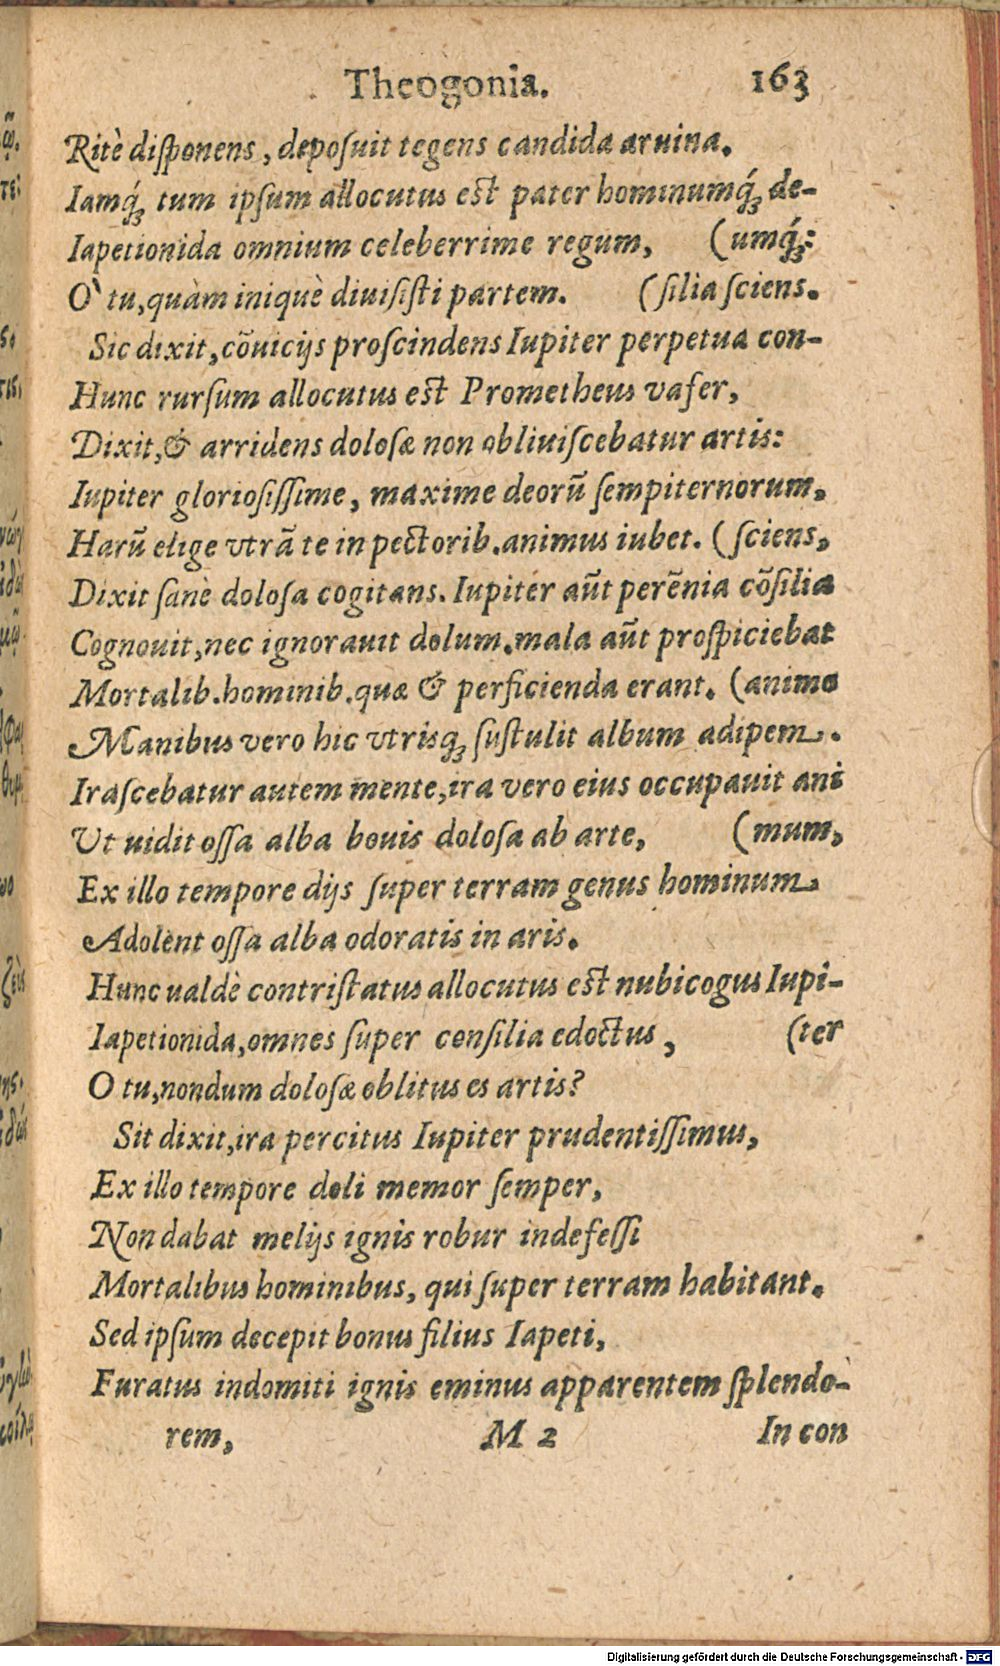 Theogonia. 163
Ritè disponens, deposuit tegens candida aruina.
Iamq́ꝫ tum ipsum allocutus est pater hominumq́ꝫ de-
Iapetionida omnium celeberrime regum, (umq́ꝫ:
O` tu, quàm iniquè diuisisti partem. (silia sciens.
Sic dixit, cõuicijs proscindens Iupiter perpetua con-
Hunc rursum allocutus est Prometheus vafer,
Dixit, & arridens dolosæ non obliuiscebatur artis:
Iupiter gloriosissime, maxime deorũ sempiternorum.
Harũ elige vtrã te in pectorib. animus iubet. (sciens,
Dixit sanè dolosa cogitans. Iupiter aũt perẽnia cõsilia
Cognouit, nec ignorauit dolum. mala aũt prospiciebat
Mortalib. hominib. quæ & perficienda erant. (animo
Manibus vero hic vtrisqꝫ sustulit album adipem.
Irascebatur autem mente, ira vero eius occupauit ani
Ut uidit ossa alba bouis dolosa ab arte, (mum,
Ex illo tempore dijs super terram genus hominum
Adolent ossa alba odoratis in aris.
Hunc ualdè contristatus allocutus est nubicogus Iupi-
Iapetionida, omnes super consilia edoctus, (ter
O tu, nondum dolosæ oblitus es artis?
Sit dixit, ira percitus Iupiter prudentissimus,
Ex illo tempore doli memor semper,
Non dabat melijs ignis robur indefessi
Mortalibus hominibus, qui super terram habitant.
Sed ipsum decepit bonus filius Iapeti,
Furatus indomiti ignis eminus apparentem splendo-
rem, M 2 In con
Digitalisierung gefördert durch die Deutsche Forschungsgemeinschaft - DFG